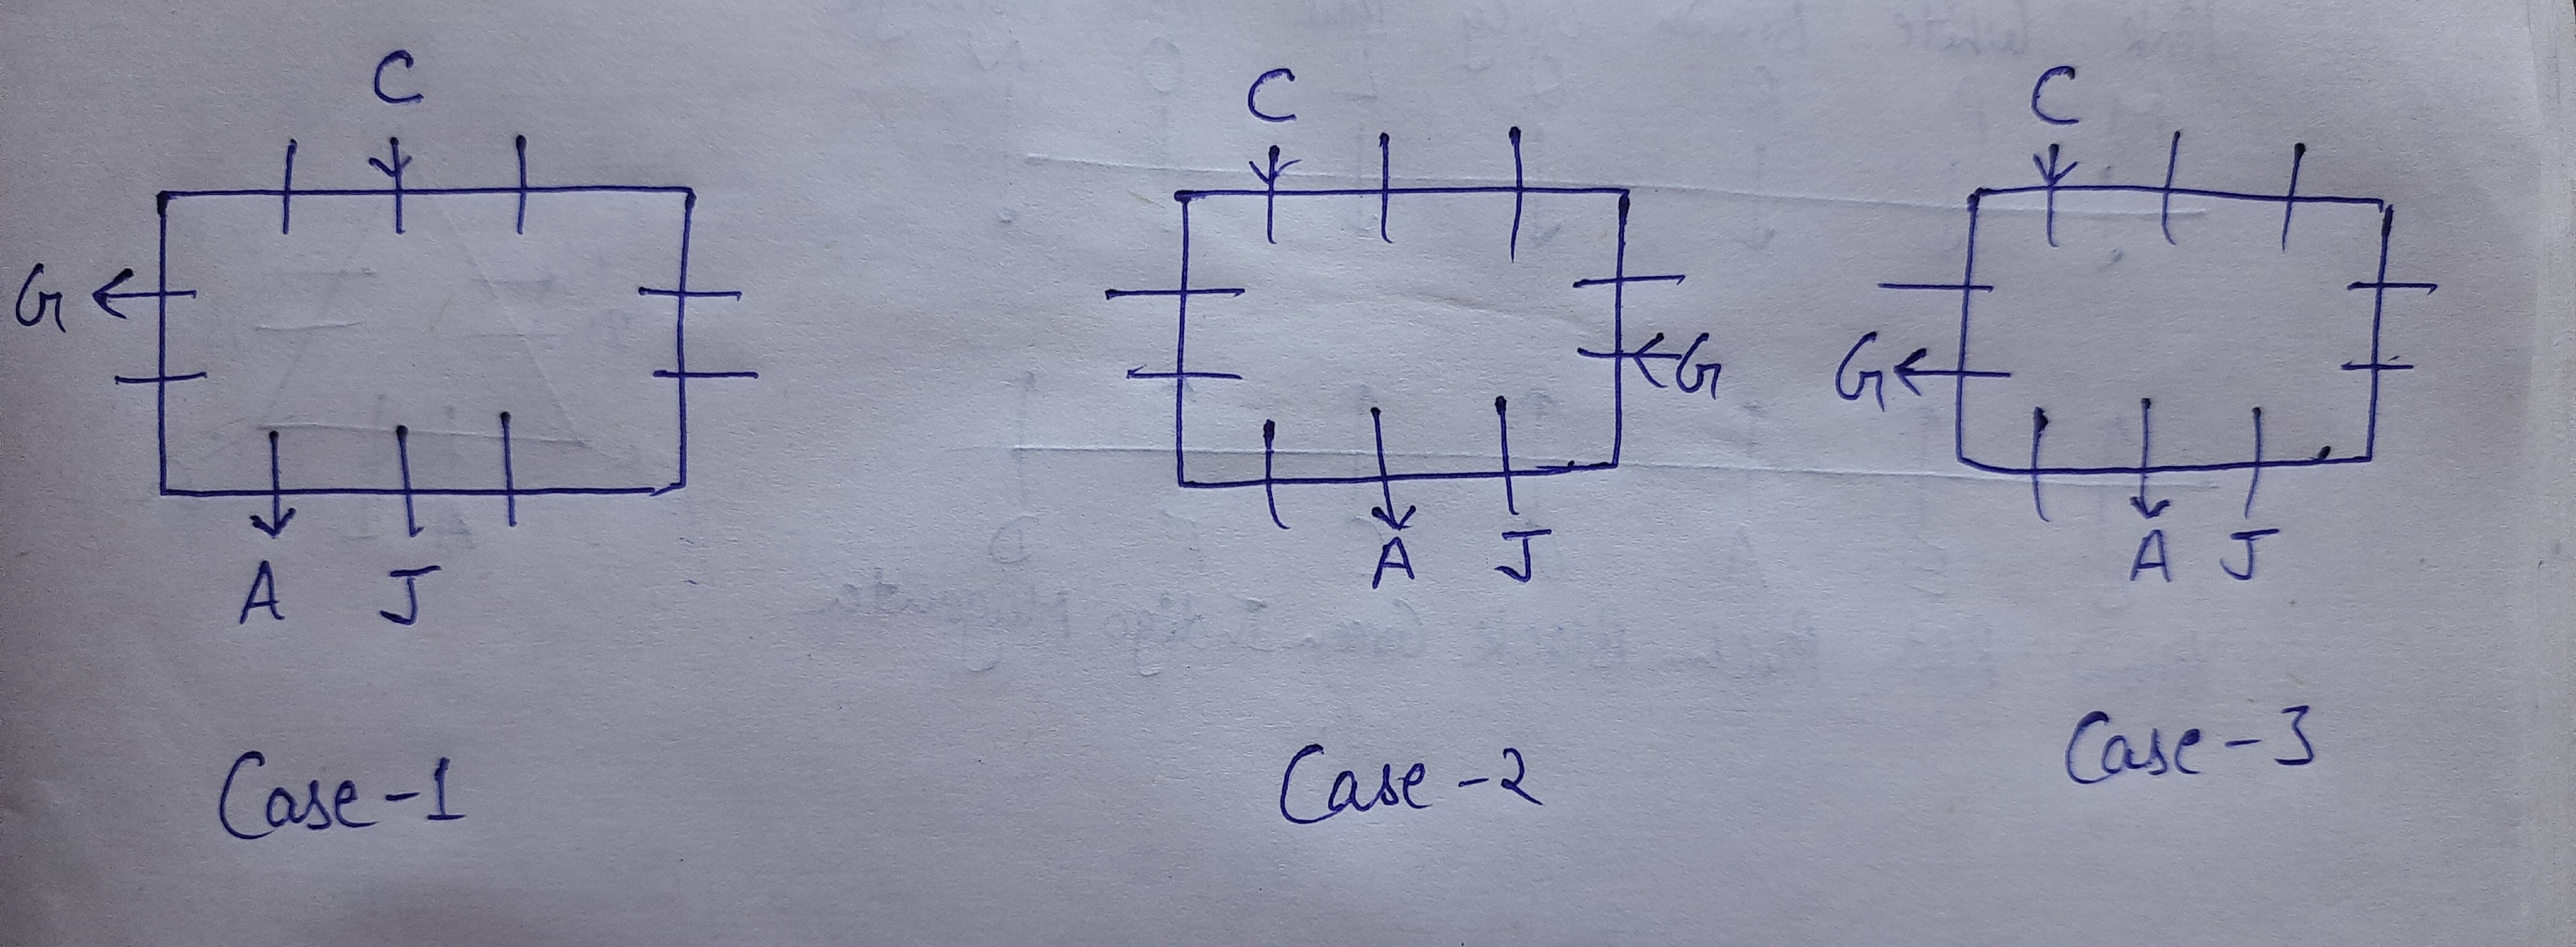 C C C
G G G
A J A J A J
Case-1 Case-2 Case-3